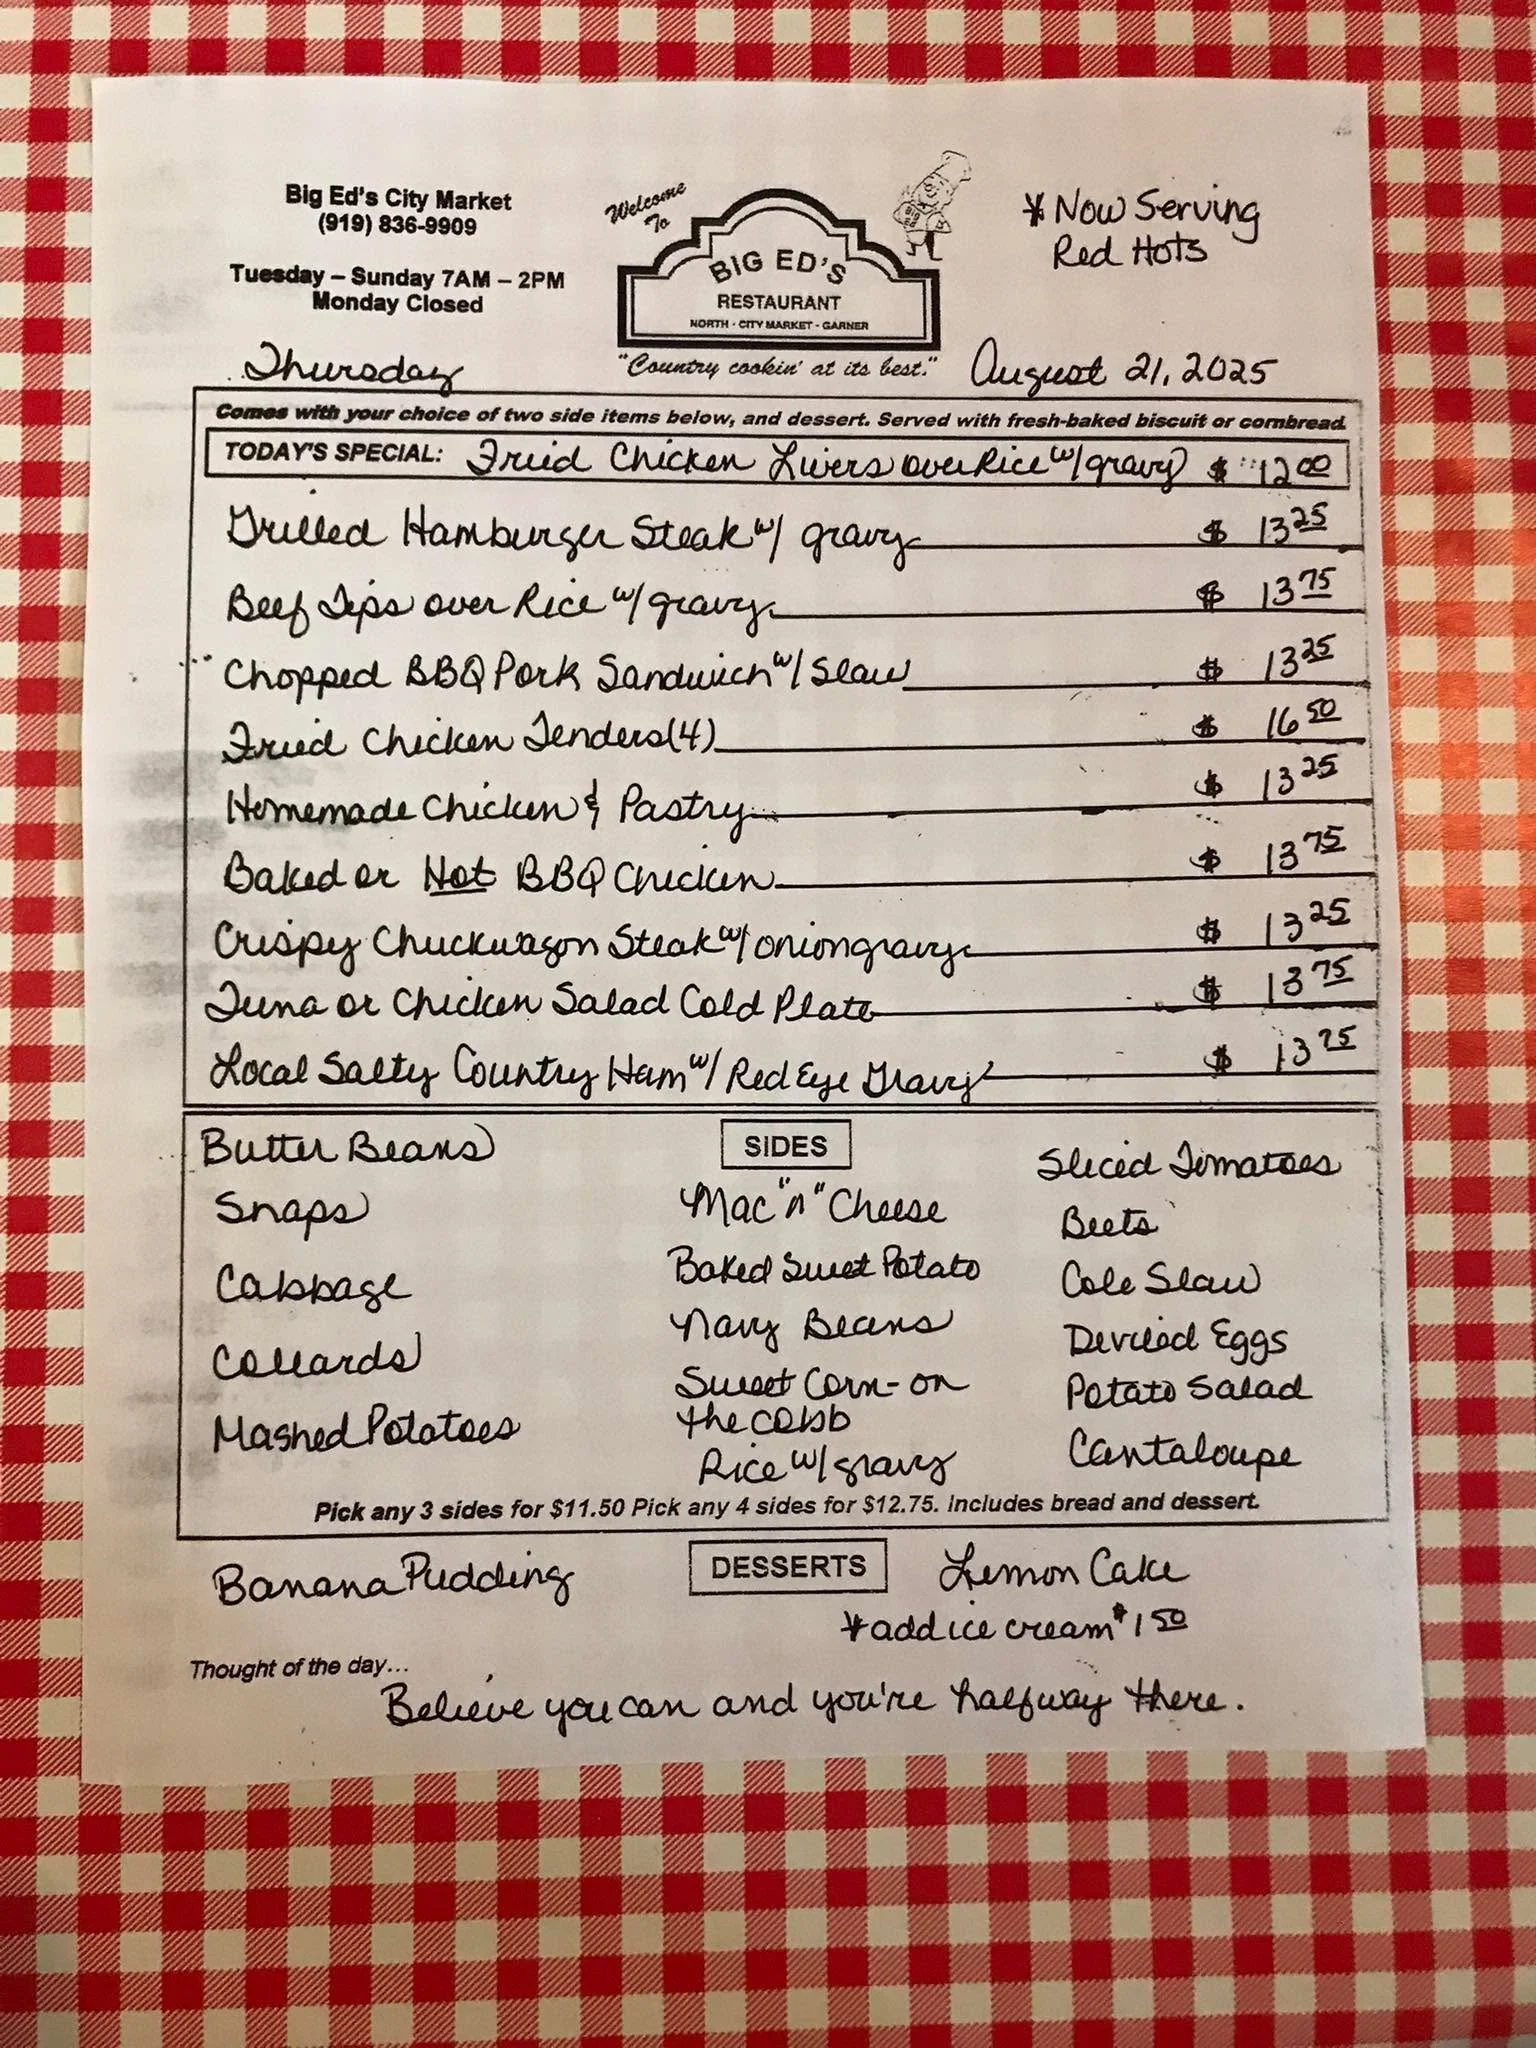 Big Ed's City Market
(919) 836-9909
Tuesday – Sunday 7AM – 2PM
Monday Closed
Welcome
To
BIG ED'S
RESTAURANT
NORTH - CITY MARKET - GARNER
"Country cookin' at its best."
* Now Serving
Red Hots
Thursday
August 21, 2025
Comes with your choice of two side items below, and dessert. Served with fresh-baked biscuit or cornbread.
TODAY'S SPECIAL: Fried Chicken Livers over Rice w/ gravy $ 12 00
Grilled Hamburger Steak w/ gravy $ 13 25
Beef Tips over Rice w/ gravy $ 13 75
Chopped BBQ Pork Sandwich w/ Slaw $ 13 25
Fried Chicken Tenders (4) $ 16 50
Homemade Chicken & Pastry $ 13 25
Baked or Hot BBQ Chicken $ 13 75
Crispy Chuckwagon Steak w/ onion gravy $ 13 25
Tuna or Chicken Salad Cold Plate $ 13 75
Local Salty Country Ham w/ Red Eye Gravy $ 13 75
SIDES
Butter Beans
Snaps
Cabbage
Collards
Mashed Potatoes
Mac "n" Cheese
Baked Sweet Potato
Navy Beans
Sweet Corn-on
the cobb
Rice w/ gravy
Sliced Tomatoes
Beets
Cole Slaw
Deviled Eggs
Potato Salad
Cantaloupe
Pick any 3 sides for $11.50 Pick any 4 sides for $12.75. Includes bread and dessert.
DESSERTS
Banana Pudding
Lemon Cake
* add ice cream $1 50
Thought of the day...
Believe you can and you're halfway there.